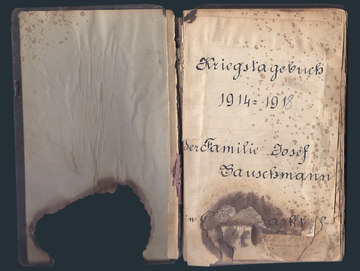 Kriegstagebuch
1914=1918
der Familie Josef
Bauschmann
in